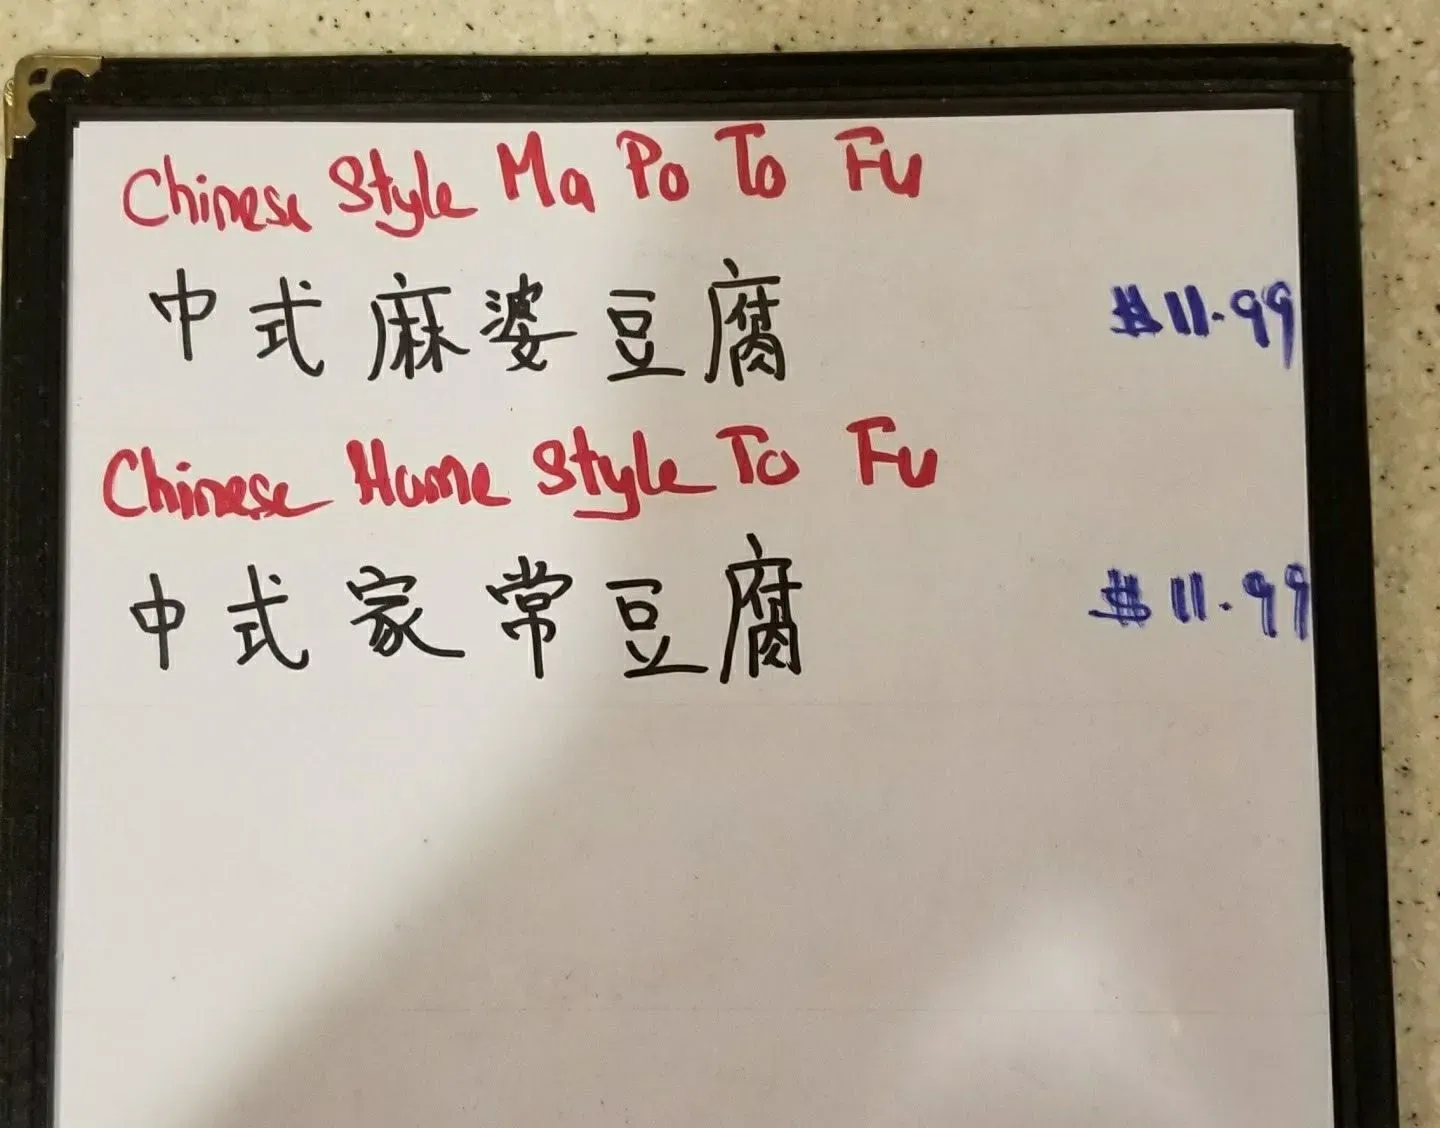 Chinese Style Ma Po To Fu
中式麻婆豆腐 $11.99
Chinese Home Style To Fu
中式家常豆腐 $11.99